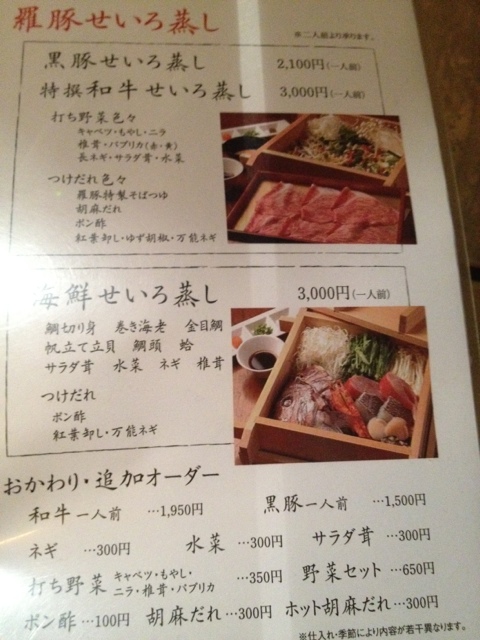 羅豚せいろ蒸し
※二人前より承ります。
黒豚せいろ蒸し 2,100円(一人前)
特撰和牛せいろ蒸し 3,000円(一人前)
打ち野菜色々
キャベツ・もやし・ニラ
椎茸・パプリカ(赤・黄)
長ネギ・サラダ茸・水菜
つけだれ色々
羅豚特製そばつゆ
胡麻だれ
ポン酢
紅葉卸し・ゆず胡椒・万能ネギ
海鮮せいろ蒸し 3,000円(一人前)
鯛切り身 巻き海老 金目鯛
帆立て立貝 鯛頭 蛤
サラダ茸 水菜 ネギ 椎茸
つけだれ
ポン酢
紅葉卸し・万能ネギ
おかわり・追加オーダー
和牛一人前 …1,950円 黒豚一人前 …1,500円
ネギ …300円 水菜 …300円 サラダ茸 …300円
打ち野菜 キャベツ・もやし・ …350円 野菜セット …650円
ニラ・椎茸・パプリカ
ポン酢 …100円 胡麻だれ …300円 ホット胡麻だれ …300円
※仕入れ・季節により内容が若干異なります。